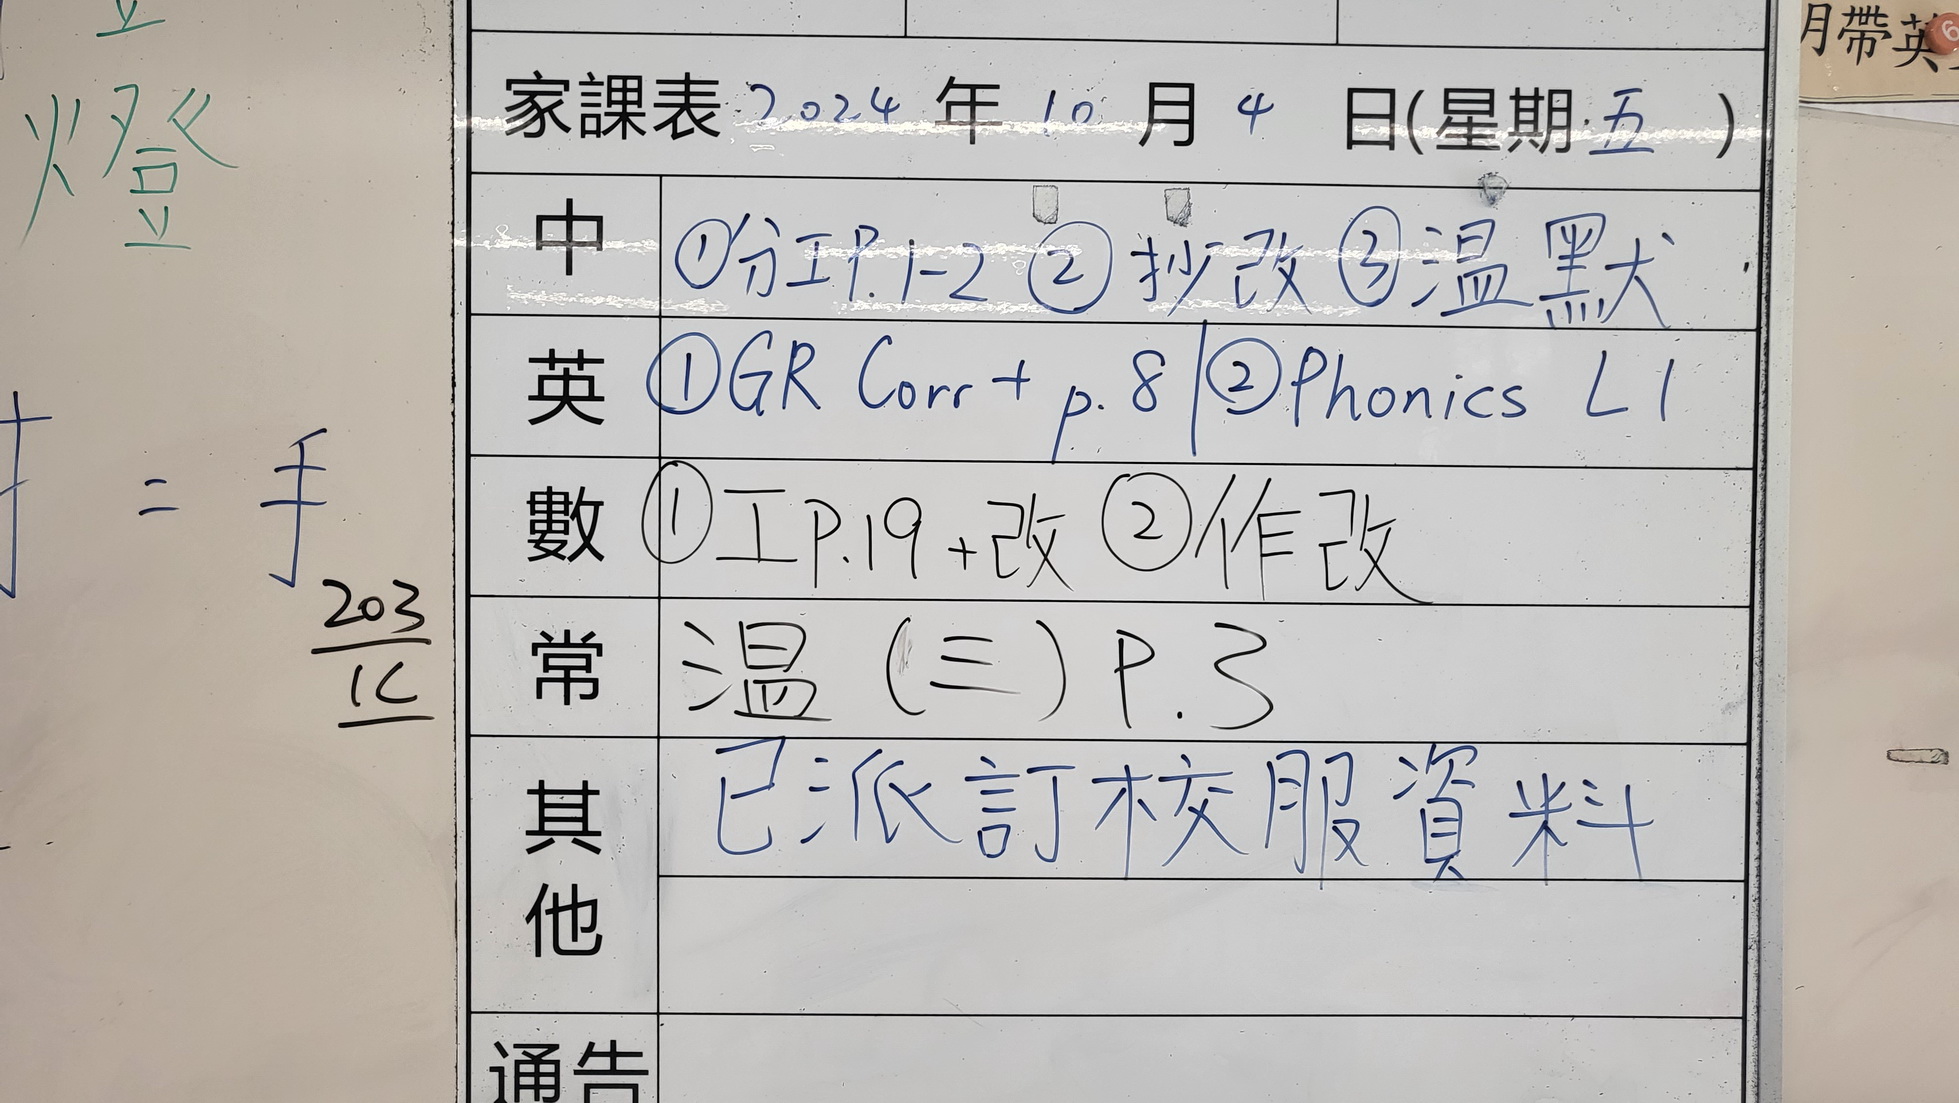 燈
= 手
203
1C
家課表 2024 年 10 月 4 日(星期:五 )
中 ①分工P.1-2 ②抄改 ③温默
英 ①GR Corr + p.8 | ②Phonics L1
數 ①工P.19+改 ②作改
常 温 (三) P.3
其他 已派訂校服資料
通告
月帶英
6